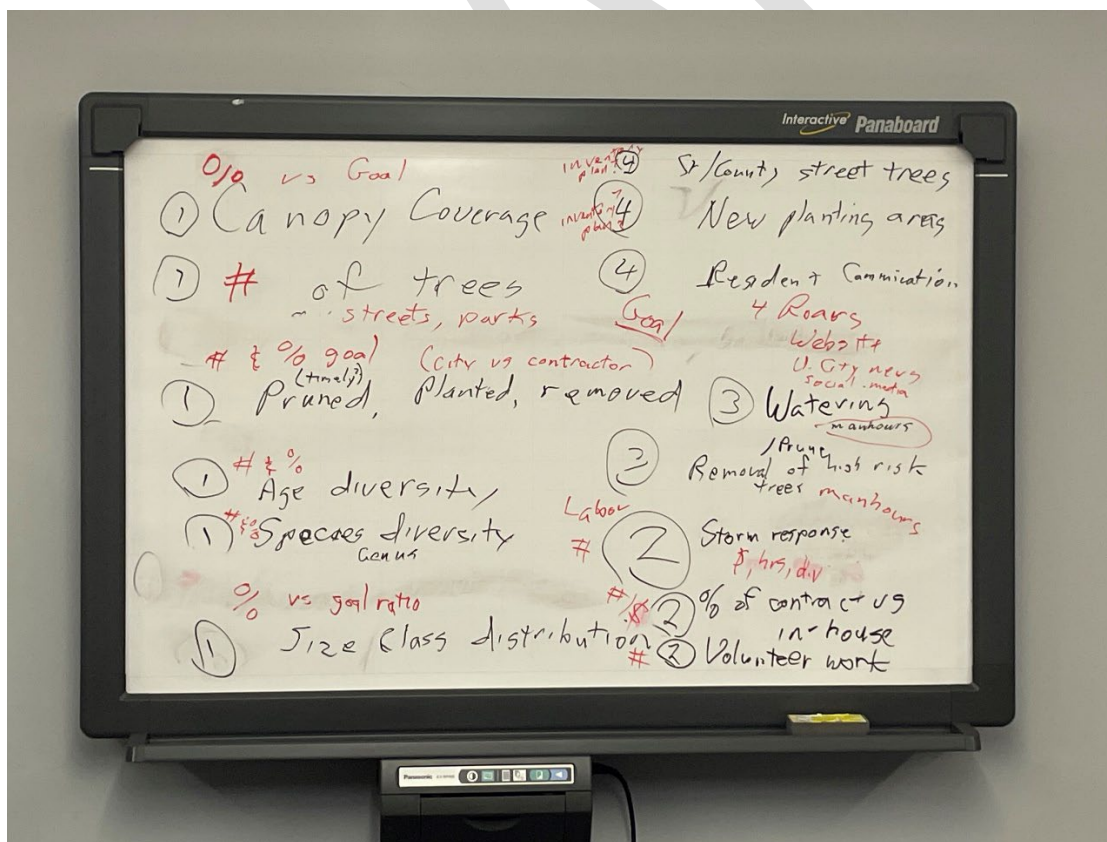 Interactive Panaboard
% vs Goal
① Canopy Coverage
① # of trees
streets, parks
# & % goal (city vs contractor)
(timely?)
① Pruned, Planted, removed
# & %
① Age diversity
# & %
① Species diversity
Genus
% vs goal ratio
① Size Class distribution
inventory
plan?
④ St/County street trees
inventory
plan?
④ New planting areas
④ Resident Commication
Goal
4 Roars
Website
U. City news
social media
③ Watering
manhours
/Prune
③ Removal of high risk
trees manhours
Labor
# ② Storm response
$, hrs, div
#/$ ② % of contract vs
in-house
# ② Volunteer work
Panasonic